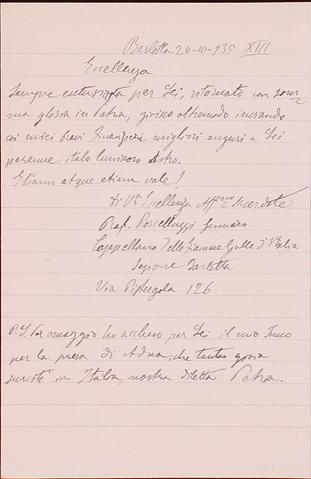 Barletta 20-10-935 XIII
Eccellenza
Sempre entusiasta per Lei, ritornato con som
ma gloria in Patria, godo oltremodo inviando
coi miei bravi Finanzieri migliori auguri a Lei
perenne italo luminoso Astro.
Etiam atque etiam vale!
di V. Eccellenza Aff.mo Sacerdote
Prof. Porcelluzzi Gennaro
Cappellano delle Fiamme Gialle d'Italia
Barletta
Via Pistergola 126
P.S. Per omaggio ho accluso per Lei il mio Inno
per la presa di Adua, che tanta gioia
in Italia, nostra diletta Patria.